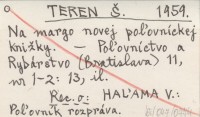 TEREN Š. 1959.
Na margo novej poľovníckej
knižky. – Poľovníctvo a
Rybárstvo (Bratislava) 11,
nr 1-2: 13, il.
Rec. o: HAĽAMA V.:
Poľovník rozpráva.